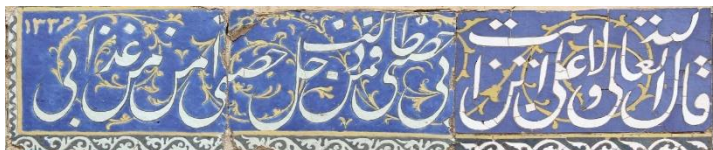 قال الله تعالی ولایت علی ابن ابی طالب حصنی فمن دخل حصنی امن من عذابی ۱۳۳۶